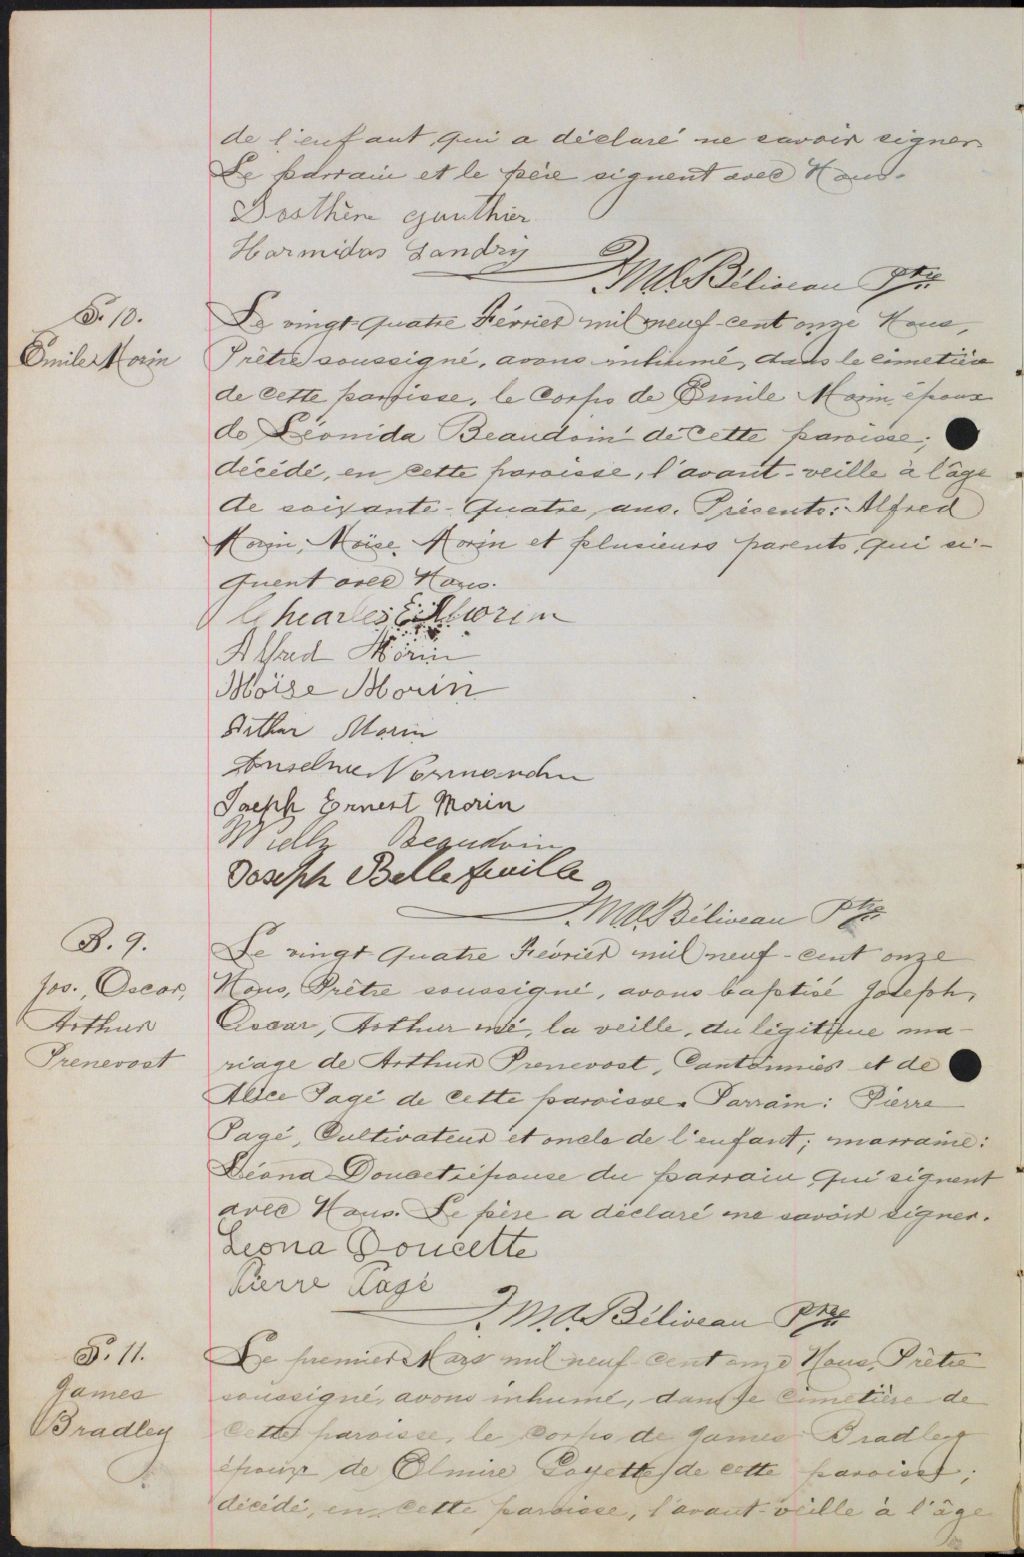 de l'enfant qui a déclaré ne savoir signer.
Le parrain et le père signent avec Nous.
Dosthène Gauthier
Harmidas Landry
J.M.A. Béliveau Ptre
S. 10.
Emile Morin
Le vingt-quatre Février mil neuf-cent onze Nous,
Prêtre soussigné, avons inhumé, dans le cimetière
de cette paroisse, le Corps de Emile Morin époux
de Léonida Beaudoin de cette paroisse;
décédé, en cette paroisse, l'avant-veille à l'âge
de soixante-quatre ans. Présents: Alfred
Morin, Moïse Morin et plusieurs parents, qui si-
gnent avec Nous.
Charles E. Morin
Alfred Morin
Moïse Morin
Arthur Morin
Anselme Normandin
Joseph Ernest Morin
Willy Beaudoin
Joseph Bellefeuille
J.M.A. Béliveau Ptre
B. 9.
Jos., Oscar,
Arthur
Prenevost
Le vingt quatre Février mil neuf-cent onze
Nous, Prêtre soussigné, avons baptisé Joseph,
Oscar, Arthur né, la veille, du légitime ma-
riage de Arthur Prenevost, Cantonnier et de
Alice Pagé de cette paroisse. Parrain: Pierre
Pagé, Cultivateur et oncle de l'enfant; marraine:
Léona Doucet épouse du parrain qui signent
avec Nous. Le père a déclaré ne savoir signer.
Leona Doucette
Pierre Pagé
J.M.A. Béliveau Ptre
S. 11.
James
Bradley
Le premier Mars mil neuf-cent onze Nous, Prêtre
soussigné, avons inhumé, dans le cimetière de
cette paroisse, le Corps de James Bradley
époux de Elmire Goyette de cette paroisse;
décédé, en cette paroisse, l'avant-veille à l'âge